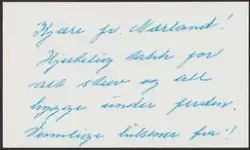 Kjære fr. Nørland!
Hjertelig takk for
alt strev og all
hygge under ferien.
Vennlige hilsener fra!